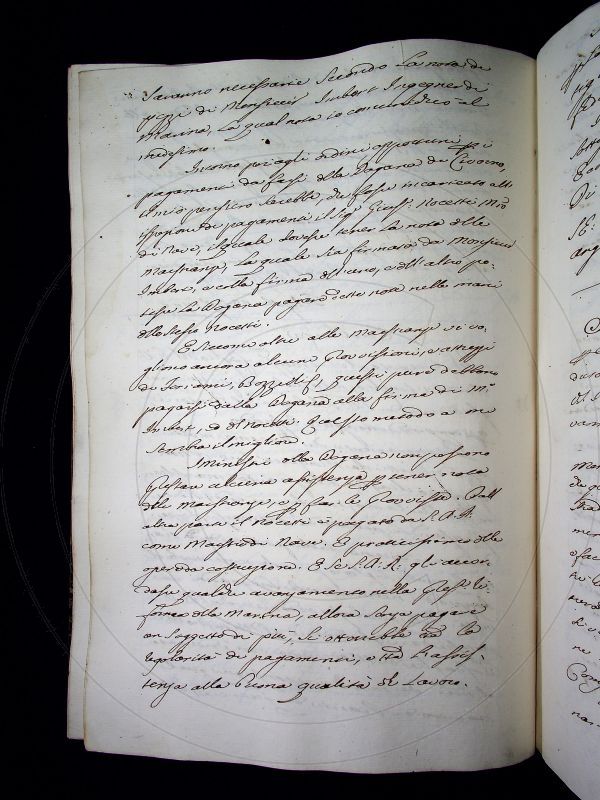 Saranno necessarie secondo la nota di
pezzi di Monsieur Imbert Ingegnere di
Marina, la qual nota io concederò al
medesimo.
Intorno poi agli ordini opportuni pei
pagamenti da farsi dalla Dogana di Livorno,
mio pensiero sarebbe, che fosse incaricato all'
ispezione di pagamenti il Sig.r Gius. Nocetti Mro
di Nave, il quale dovesse tener la nota delle
Maestranze, la quale sia firmata da Monsieur
Imbert, e colla firma di uno, e dell'altro po-
tesse la Dogana pagare dette note nelle mani
dello stesso Nocetti.
E siccome oltre alle Maestranze vi vo-
gliono ancora alcune Provvisioni, e attrezzi
di Bozzelli questi però debbano
pagarsi dalla Dogana alla firma di Mr
Imbert, e di Nocetti. Questo metodo a me
sembra il migliore.
I Ministri della Dogana non possono
prestare alcuna assistenza per tener nota
delle maestranze, e per far le Provviste. Dall'
altra parte il Nocetti è pagato da S. A. R.
come Maestro di Nave. È praticissimo delle
opere da costruzione. E se S. A. R. gli accor-
dasse qualche avanzamento nella
forma della Marina, allora senza pagare
un soggetto di più, si otterrebbe la
regolarità di pagamenti, e l'assis-
tenza alla buona qualità de Lavori.